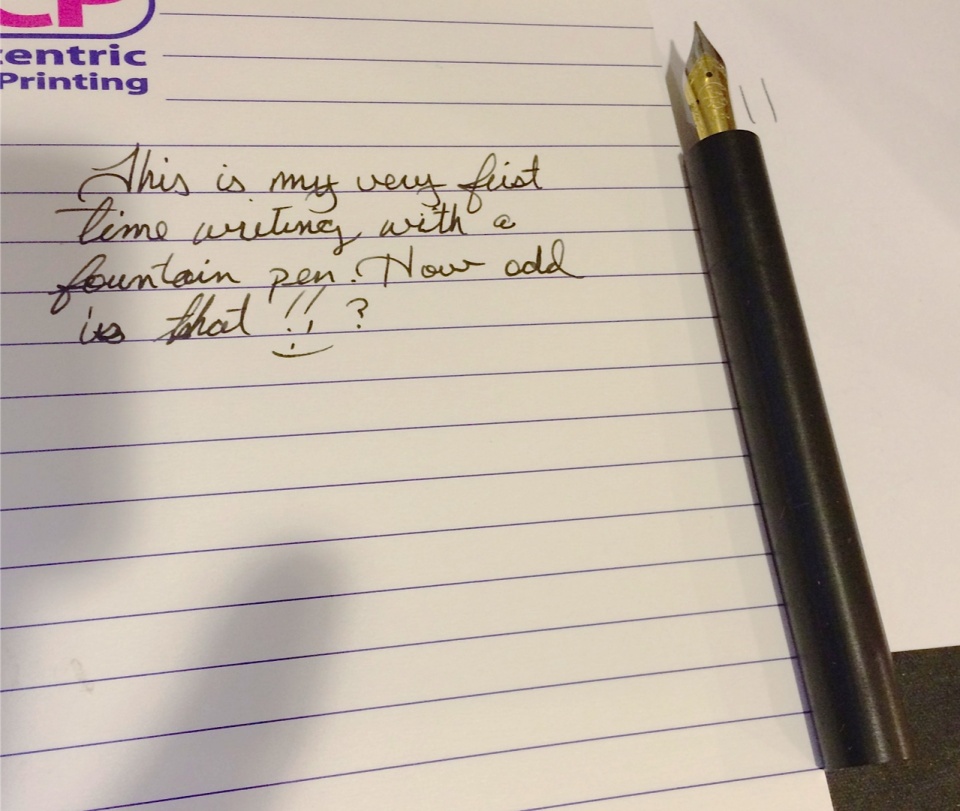 CP
centric
Printing
This is my very first
time writing with a
fountain pen. How odd
is that !!, ?